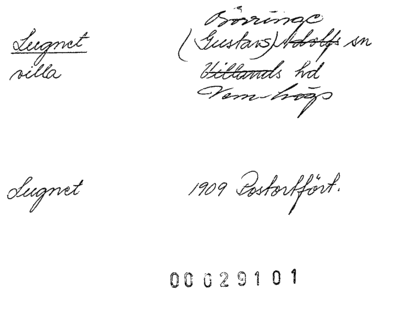 Börringe
Lugnet (Gustavs) Adolfs sn
villa Villands hd
Vemmenhögs
Lugnet 1909 Postortfört.
00029101